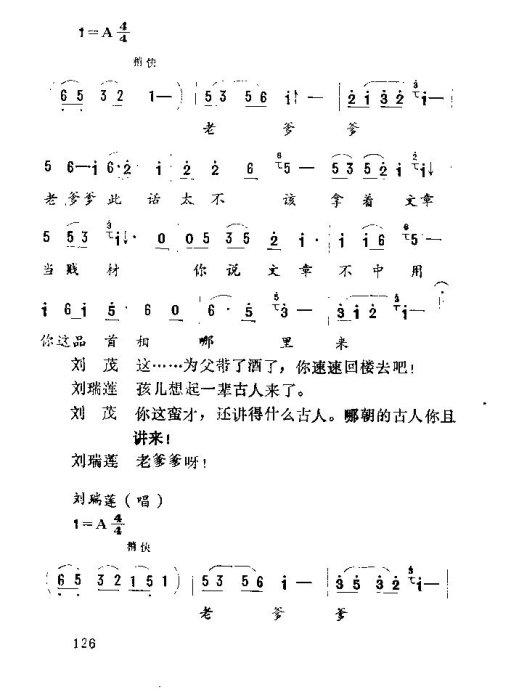 1=A 4/4
稍快
(6 5 3 2 1—) | 5 3 5 6 i — | 2 i 3 2 i — |
老 爹 爹
5 6—i 6·2 i 2 2 6 5— 5 3 5 2 i i
老爹爹此 话太不 该拿着 文章
5 5 3 i· 0 0 5 3 5 2 i· i i 6 5—
当贱 材 你说 文章 不中 用
i 6 i 5· 6 0 6 5· 3— 3 i 2 i—
你这品 首相 哪 里 来
刘 茂 这……为父带了酒了，你速速回楼去吧！
刘瑞莲 孩儿想起一辈古人来了。
刘 茂 你这蛮才，还讲得什么古人。哪朝的古人你且
讲来！
刘瑞莲 老爹爹呀！
刘瑞莲（唱）
1=A 4/4
稍快
(6 5 3 2 1 5 1) | 5 3 5 6 i — | 3 5 3 2 i — |
老 爹 爹
126